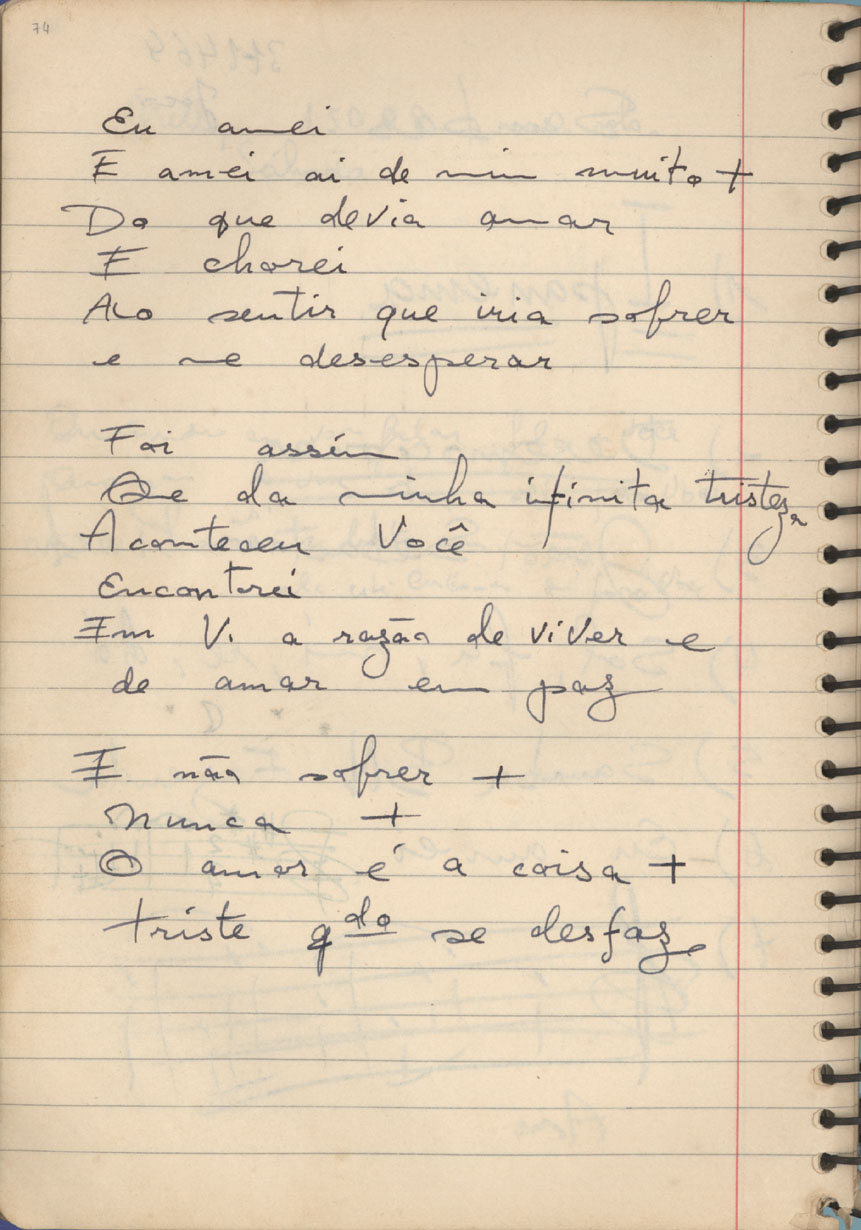 74
Eu amei
E amei ai de mim muito +
Do que devia amar
E chorei
Ao sentir que iria sofrer
e me desesperar
Foi assim
Qe da minha infinita tristeza
Aconteceu Você
Encontrei
Em V. a razão de viver e
de amar em paz
E não sofrer +
Nunca +
O amor é a coisa +
triste qdo se desfaz